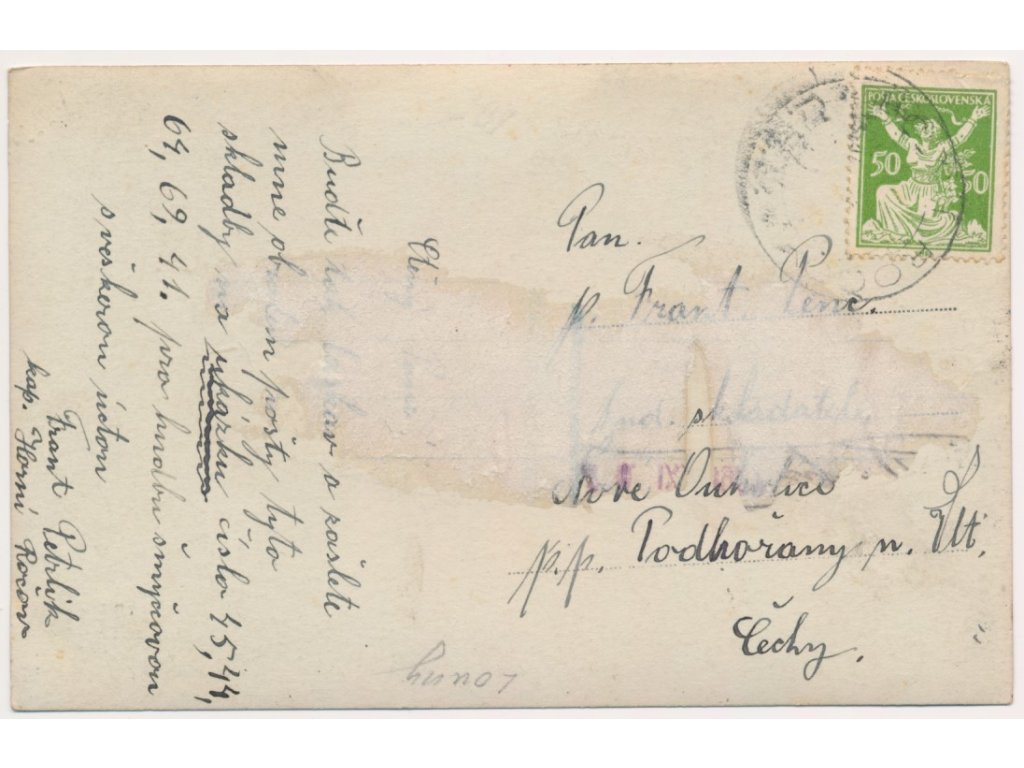 POŠTA ČESKOSLOVENSKA
50 50
Ctěný
Buďte tak laskav a zašlete
mne obratem pošty tyto
skladby na ukázku číslo 45, 44,
64, 69, 41. pro hudbu smyčcovou
s veškerou úctou
Frant Petrlik
kap. Horní Ročov
Pan.
p. Frant. Penc.
skladatel
Nové
p.p. Podhořany n. Vlt.
Čechy.
Louny